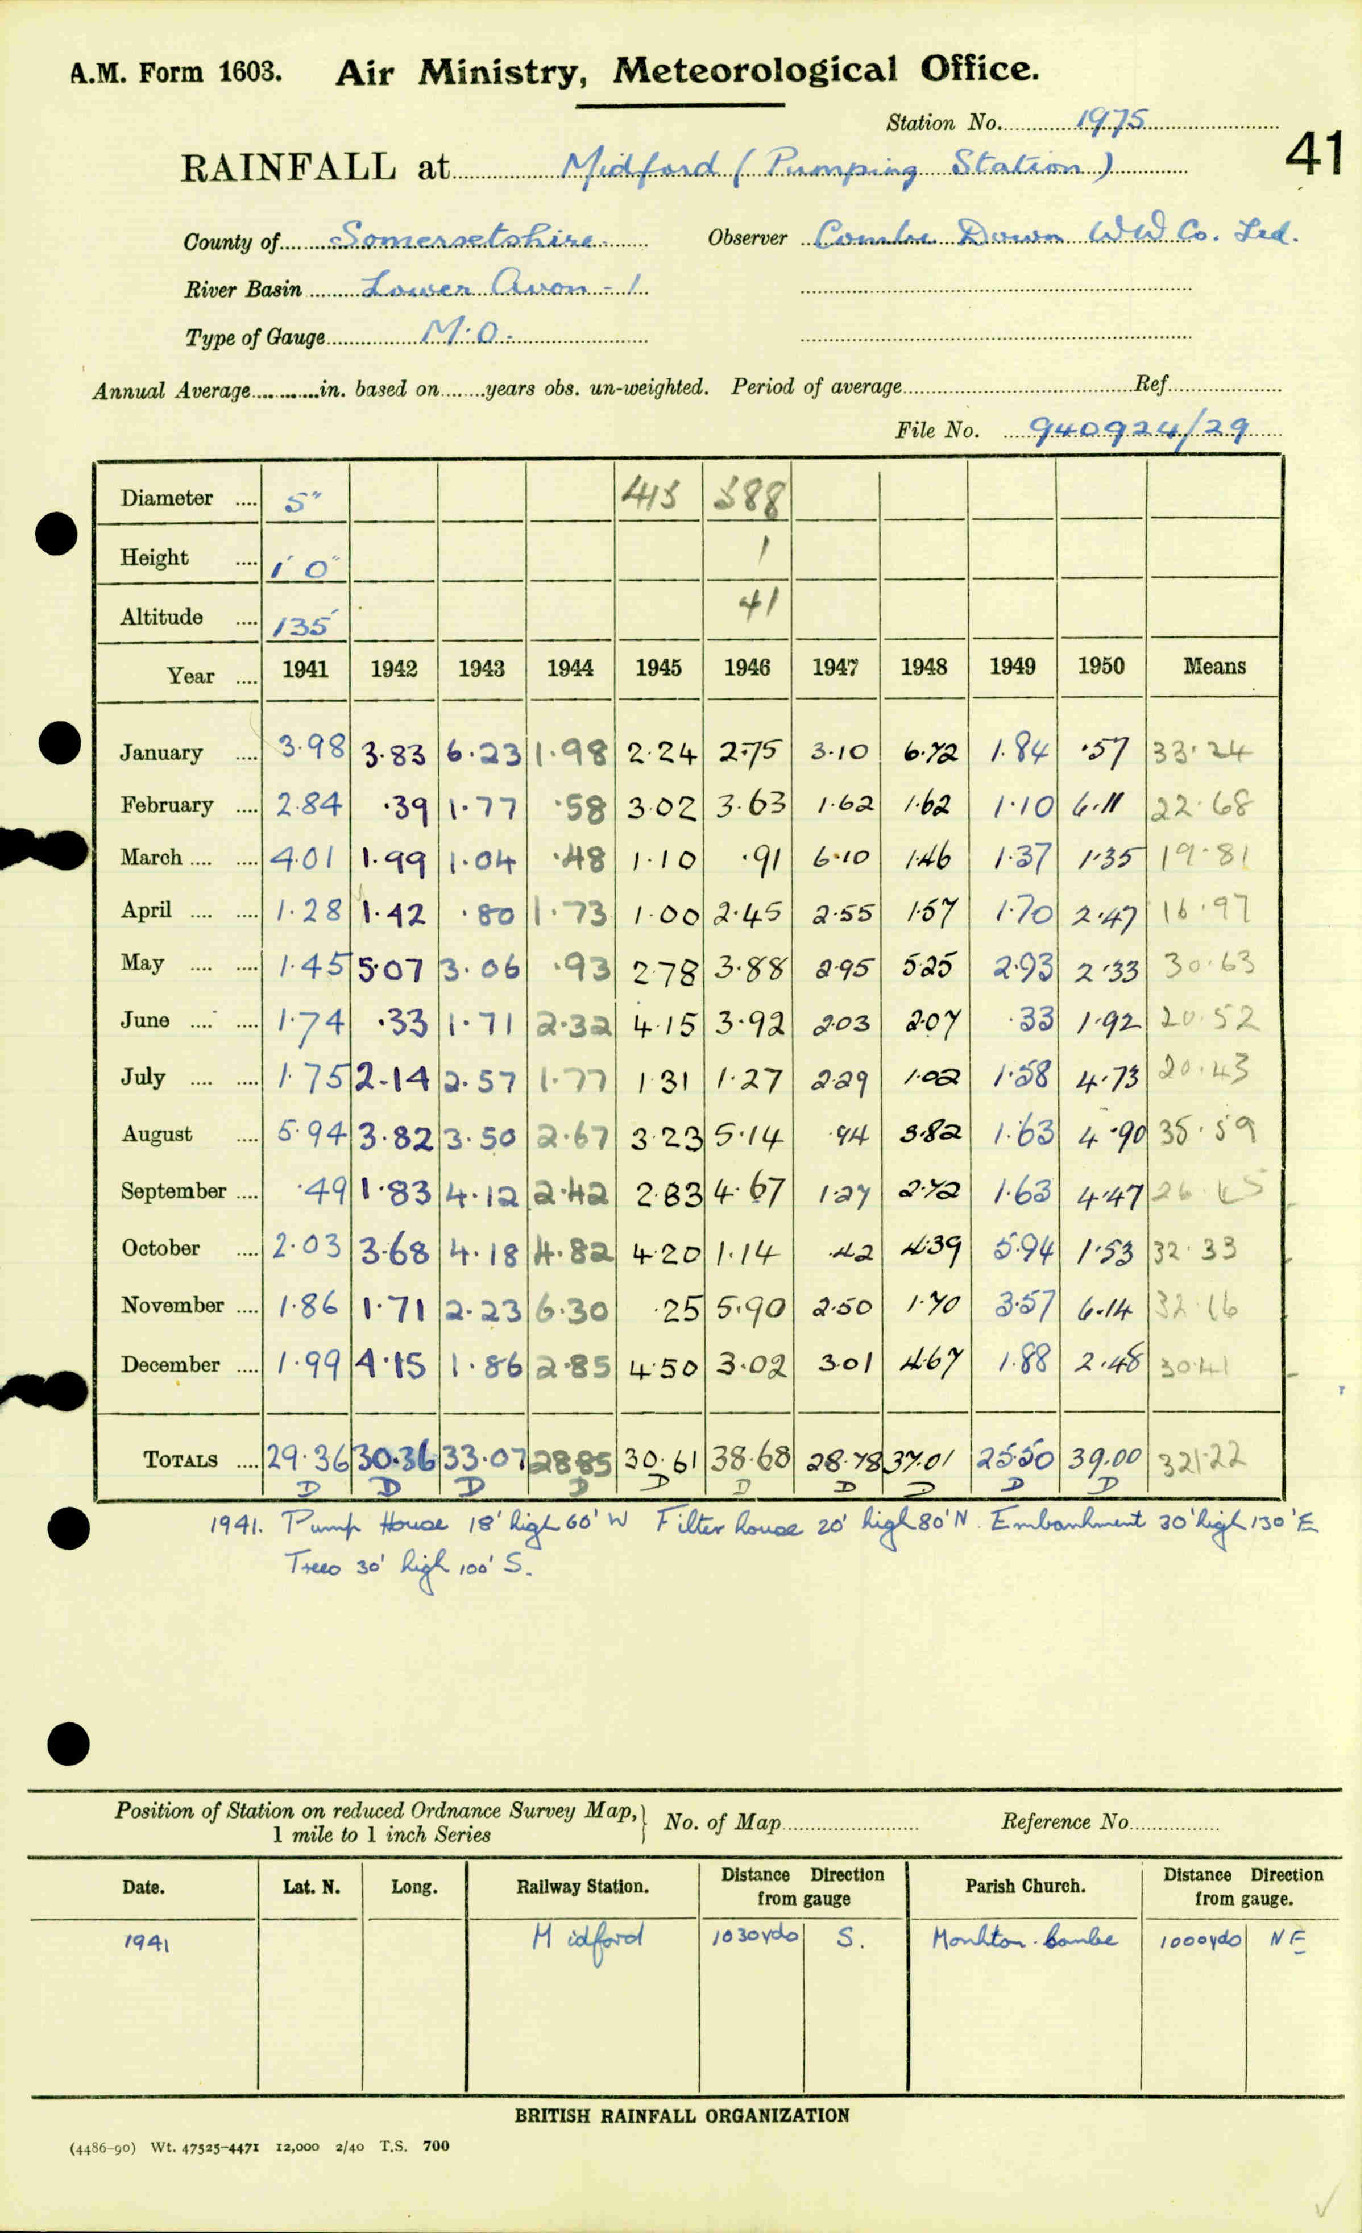 A.M. Form 1603. Air Ministry, Meteorological Office.
Station No. 1975
41
RAINFALL at Midford (Pumping Station)
County of Somersetshire. Observer Combe Down W W Co. Ltd.
River Basin Lower Avon - 1
Type of Gauge M.O.
Annual Average in. based on years obs. un-weighted. Period of average Ref.
File No. 940924/29
Diameter 5" 413 388
Height 1' 0" 1
Altitude 135 41
Year 1941 1942 1943 1944 1945 1946 1947 1948 1949 1950 Means
January 3.98 3.83 6.23 1.98 2.24 2.75 3.10 6.72 1.84 .57 33.24
February 2.84 .39 1.77 .58 3.02 3.63 1.62 1.62 1.10 6.11 22.68
March 4.01 1.99 1.04 .48 1.10 .91 6.10 1.46 1.37 1.35 19.81
April 1.28 1.42 .80 1.73 1.00 2.45 2.55 1.57 1.70 2.47 16.97
May 1.45 5.07 3.06 .93 2.78 3.88 2.95 5.25 2.93 2.33 30.63
June 1.74 .33 1.71 2.32 4.15 3.92 2.03 2.07 .33 1.92 20.52
July 1.75 2.14 2.57 1.77 1.31 1.27 2.29 1.02 1.58 4.73 20.43
August 5.94 3.82 3.50 2.67 3.23 5.14 .94 3.82 1.63 4.90 35.59
September .49 1.83 4.12 2.42 2.83 4.67 1.27 2.72 1.63 4.47 26.45
October 2.03 3.68 4.18 4.82 4.20 1.14 .42 4.39 5.94 1.53 32.33
November 1.86 1.71 2.23 6.30 .25 5.90 2.50 1.70 3.57 6.14 32.16
December 1.99 4.15 1.86 2.85 4.50 3.02 3.01 4.67 1.88 2.48 30.41
TOTALS 29.36 30.36 33.07 28.85 30.61 38.68 28.78 37.01 25.50 39.00 321.22
D D D D D D D D D D
1941. Pump House 18' high 60' W Filter house 20' high 80' N. Embankment 30' high 130' E
Trees 30' high 100' S.
Position of Station on reduced Ordnance Survey Map, No. of Map Reference No.
1 mile to 1 inch Series
Date. Lat. N. Long. Railway Station. Distance Direction from gauge Parish Church. Distance Direction from gauge.
1941 Midford 1030 yds S. Monkton Combe 1000 yds NE
BRITISH RAINFALL ORGANIZATION
(4486-90) Wt. 47525-4471 12,000 2/40 T.S. 700